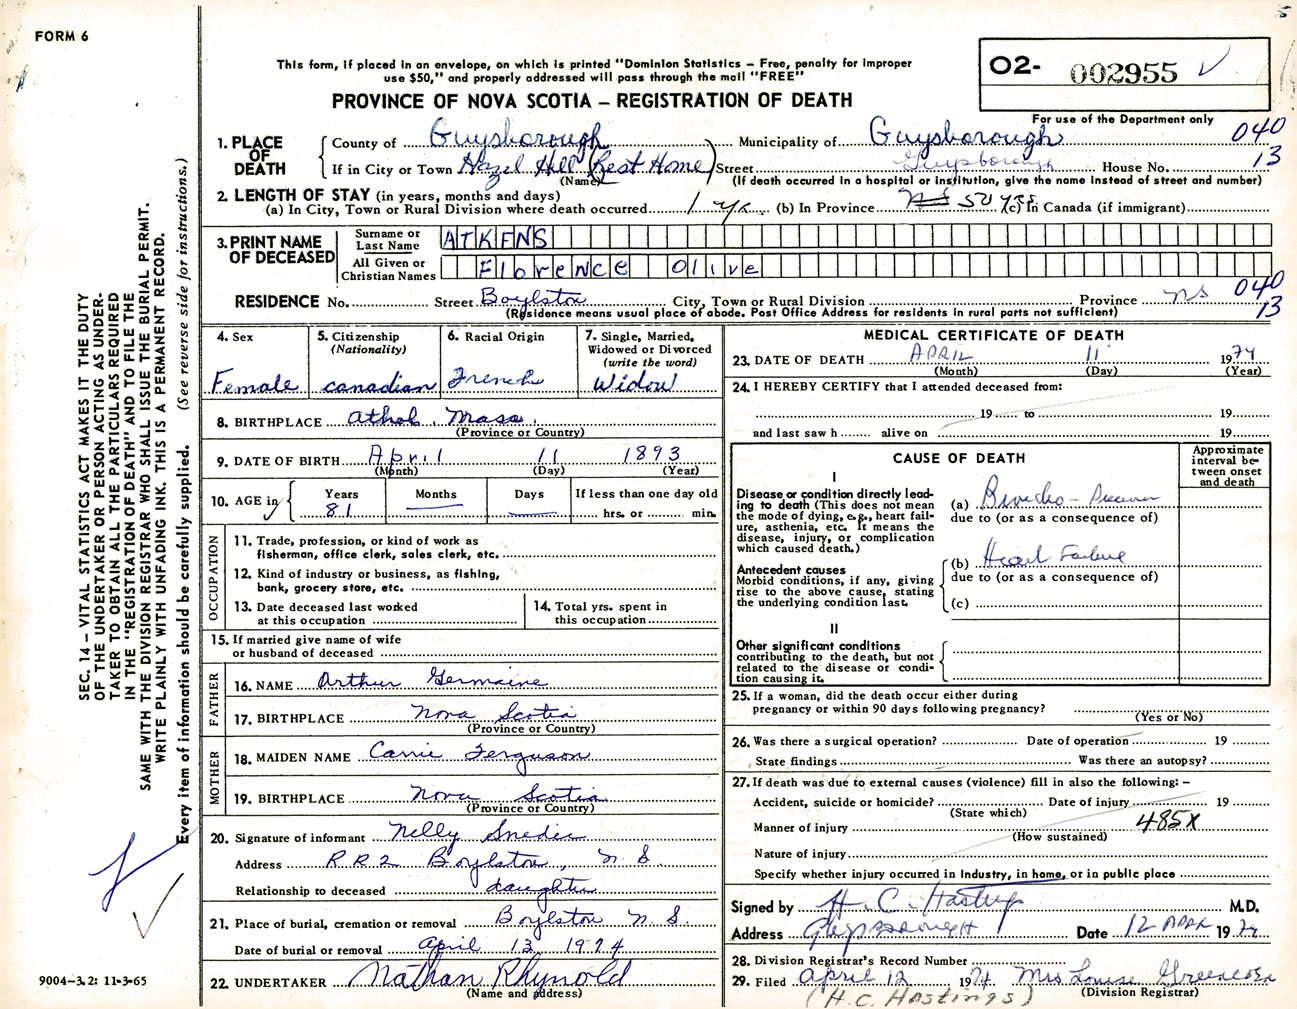 FORM 6
This form, if placed in an envelope, on which is printed "Dominion Statistics – Free, penalty for improper
use $50," and properly addressed will pass through the mail "FREE"
PROVINCE OF NOVA SCOTIA – REGISTRATION OF DEATH
O2- 002955 ✓
For use of the Department only
040
13
SEC. 14 – VITAL STATISTICS ACT MAKES IT THE DUTY
OF THE UNDERTAKER OR PERSON ACTING AS UNDER-
TAKER TO OBTAIN ALL THE PARTICULARS REQUIRED
IN THE "REGISTRATION OF DEATH" AND TO FILE THE
SAME WITH THE DIVISION REGISTRAR WHO SHALL ISSUE THE BURIAL PERMIT.
WRITE PLAINLY WITH UNFADING INK. THIS IS A PERMANENT RECORD.
Every item of information should be carefully supplied. (See reverse side for instructions.)
9004-3.2: 11-3-65
1. PLACE OF DEATH
County of Guysborough Municipality of Guysborough
If in City or Town Hazel Hill (Rest Home) Street Guysborough House No.
(Name) (If death occurred in a hospital or institution, give the name instead of street and number)
2. LENGTH OF STAY (in years, months and days)
(a) In City, Town or Rural Division where death occurred 1 yr. (b) In Province 50 yrs (c) In Canada (if immigrant)
3. PRINT NAME OF DECEASED
Surname or Last Name ATKENS
All Given or Christian Names Florence Olive
RESIDENCE No. Street Boylston City, Town or Rural Division Province NS 040
(Residence means usual place of abode. Post Office Address for residents in rural parts not sufficient) 13
4. Sex Female
5. Citizenship (Nationality) canadian
6. Racial Origin French
7. Single, Married, Widowed or Divorced (write the word) Widow
8. BIRTHPLACE Athol, Mass.
(Province or Country)
9. DATE OF BIRTH April 11 1893
(Month) (Day) (Year)
10. AGE in Years 81 Months — Days — If less than one day old hrs. or min.
OCCUPATION
11. Trade, profession, or kind of work as
fisherman, office clerk, sales clerk, etc.
12. Kind of industry or business, as fishing,
bank, grocery store, etc.
13. Date deceased last worked
at this occupation
14. Total yrs. spent in
this occupation
15. If married give name of wife
or husband of deceased
FATHER
16. NAME Arthur Germaine
17. BIRTHPLACE Nova Scotia
(Province or Country)
MOTHER
18. MAIDEN NAME Carrie Ferguson
19. BIRTHPLACE Nova Scotia
(Province or Country)
20. Signature of informant Nelly
Address RR2 Boylston, N S.
Relationship to deceased daughter
21. Place of burial, cremation or removal Boylston N. S.
Date of burial or removal April 13 1974
22. UNDERTAKER Nathan Rhynold
(Name and address)
MEDICAL CERTIFICATE OF DEATH
23. DATE OF DEATH APRIL 11 1974
(Month) (Day) (Year)
24. I HEREBY CERTIFY that I attended deceased from:
19 to 19
and last saw h alive on 19
CAUSE OF DEATH
Approximate interval be-tween onset and death
I
Disease or condition directly lead-
ing to death (This does not mean
the mode of dying, e.g., heart fail-
ure, asthenia, etc. It means the
disease, injury, or complication
which caused death.)
(a) Broncho-
due to (or as a consequence of)
Antecedent causes
Morbid conditions, if any, giving
rise to the above cause, stating
the underlying condition last.
(b) Heart Failure
due to (or as a consequence of)
(c)
II
Other significant conditions
contributing to the death, but not
related to the disease or condi-
tion causing it.
25. If a woman, did the death occur either during
pregnancy or within 90 days following pregnancy?
(Yes or No)
26. Was there a surgical operation? Date of operation 19
State findings Was there an autopsy?
27. If death was due to external causes (violence) fill in also the following: –
Accident, suicide or homicide? Date of injury 19
(State which)
Manner of injury 485X
(How sustained)
Nature of injury
Specify whether injury occurred in industry, in home, or in public place
Signed by H. C. Hastings M.D.
Address Guysborough Date 12 APRIL 1974
28. Division Registrar's Record Number
29. Filed April 12 1974 Mrs Louise
(Division Registrar)
(H.C. Hastings)